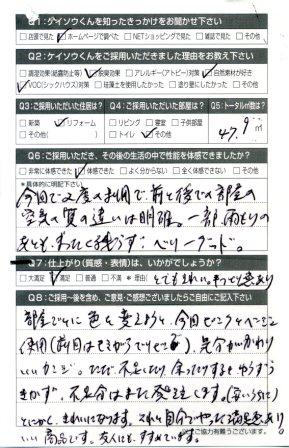 Q1:ケイソウくんを知ったきっかけをお聞かせ下さい
店頭で見た ホームページで調べた NETショッピングで見た 雑誌で見た その他
Q2:ケイソウくんをご採用いただきました理由をお教え下さい
調湿効果(結露防止等) 脱臭効果 アレルギー(アトピー)対策 自然素材が好き
VOC(シックハウス)対策 珪藻土を使用したかった 塗り壁にしたかった その他
Q3:ご採用いただいた住居は? Q4:ご採用いただいた部屋は? Q5:トータル㎡数は?
新築 リフォーム リビング 寝室 子供部屋
その他( ) トイレ その他( )
47.9㎡
Q6:ご採用いただき、その後の生活の中で性能を体感できましたか?
非常に体感できた 体感できた よく分からない 全く体感できない その他
*具体的に明記下さい
今回で2度の利用で前と後での部屋の
空気の質の違いは明確。一部雨もりの
ベリーグッド。
Q7:仕上がり(質感・表情)は、いかがでしょうか?
大満足 満足 普通 不満 *理由( とてもきれい。
Q8:ご採用一後を含め、ご意見・ご感想ございましたらご自由にご記入下さい
部屋ごとに色を変えようと、今回
使用(前回は 気分がかわり
いいカンジ。ただ不足したり余ったりするとやりよう
不足分はまた発注します。
とにかく、きれいになります。これは自分でやった満足感あり
いい商品です。友人にもすすめています。
ご協力有難うございます。